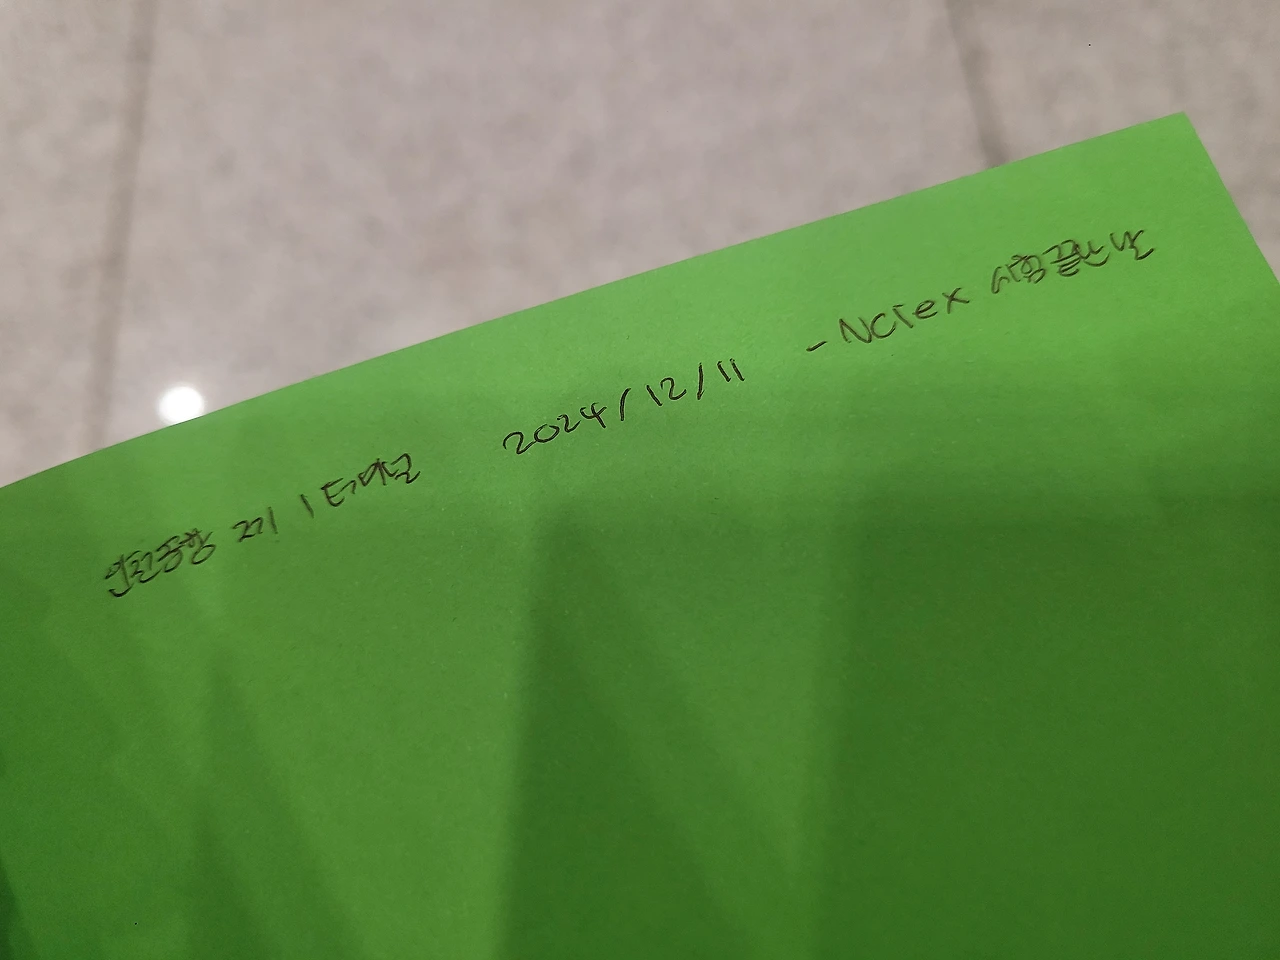 인천공항 제1터미널 2024/12/11 - Nclex 시험끝난 날